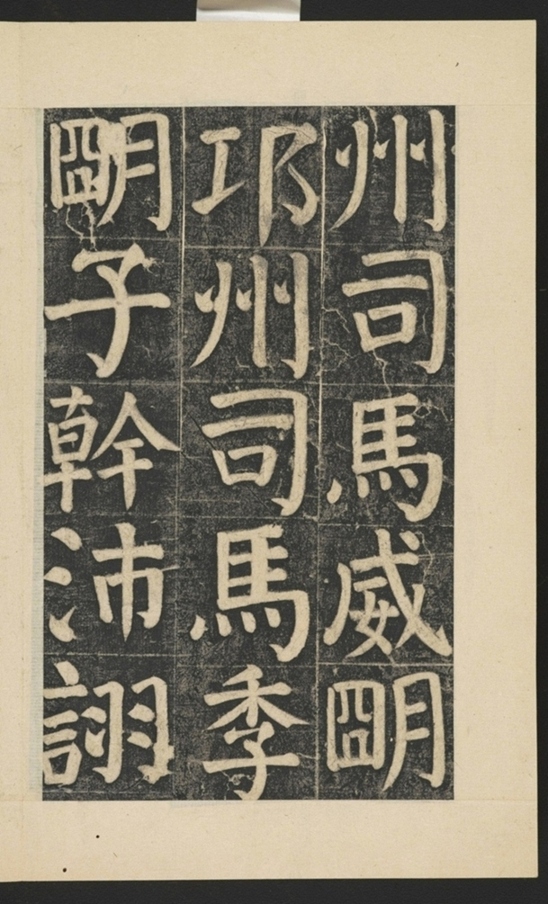 州司馬威朙
邛州司馬季
朙子幹沛詡